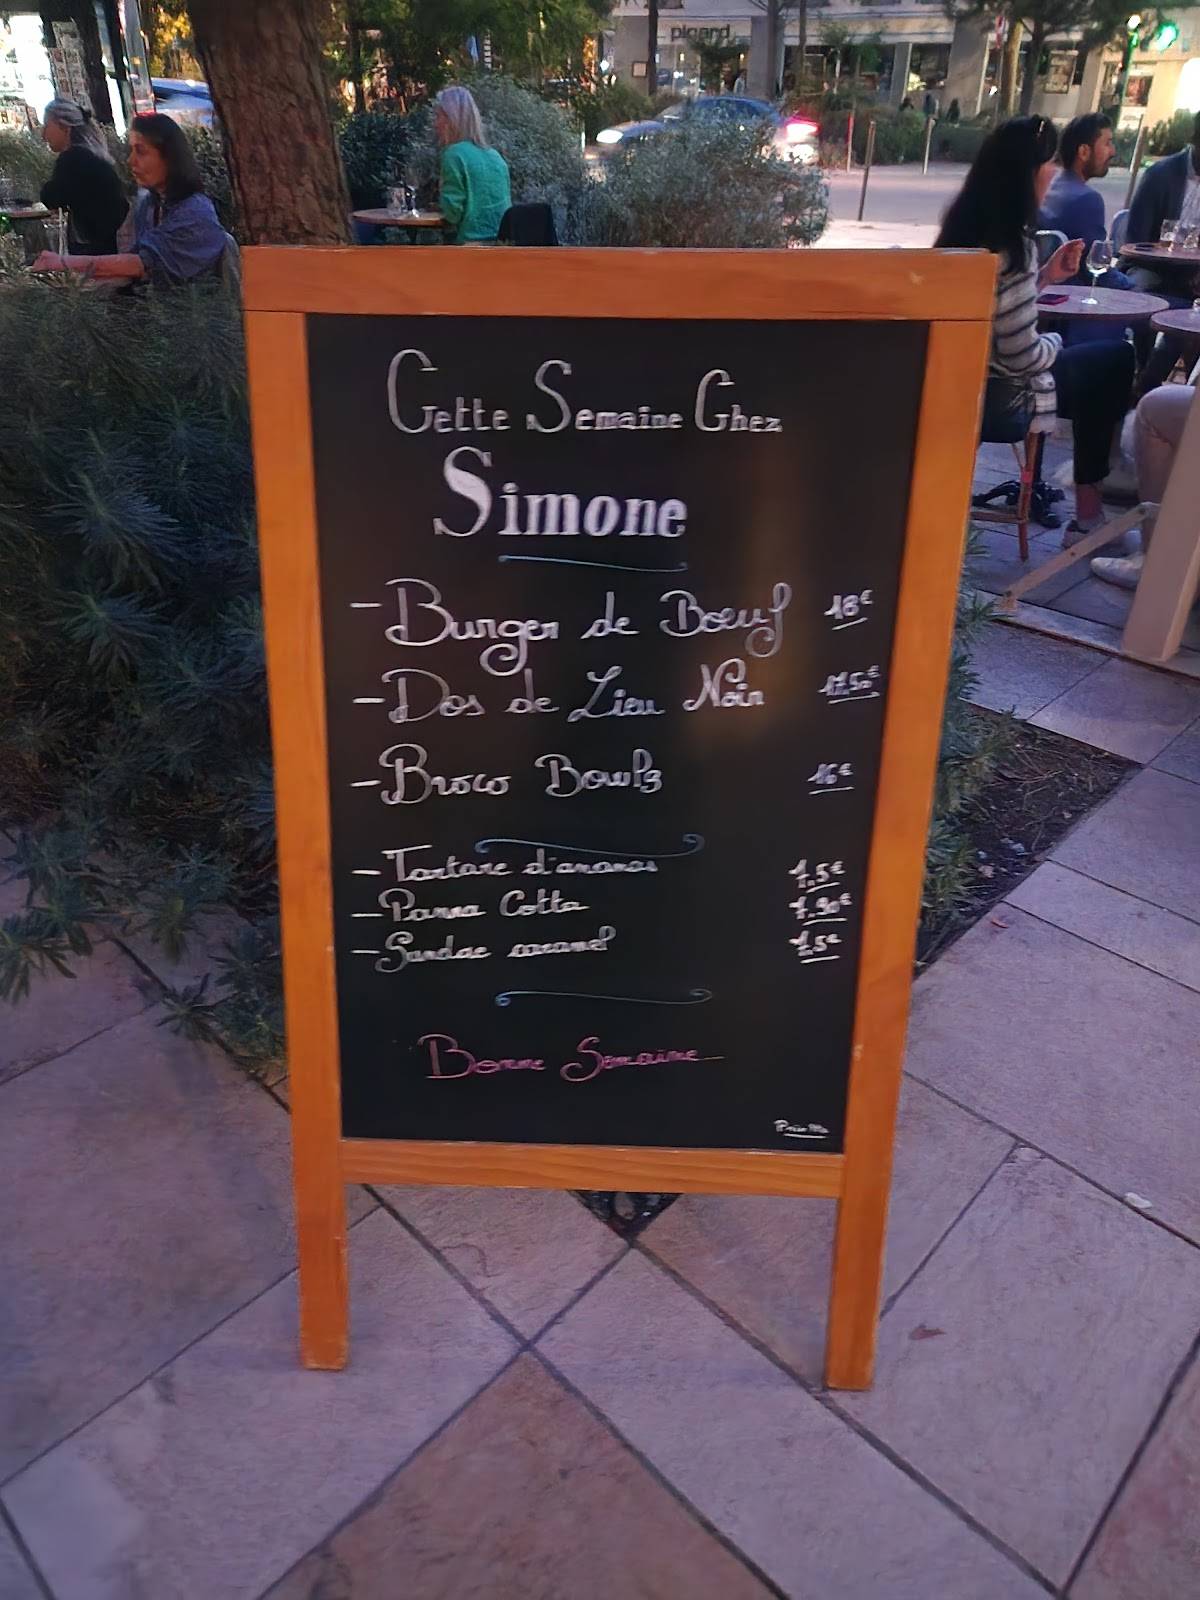 picard
Cette Semaine Chez
Simone
- Burger de Boeuf 18€
- Dos de Lieu Noir 17,50€
- Broco Bowls 16€
- Tartare d'ananas 7,5€
- Panna Cotta 7,90€
- Sundae caramel 7,5€
Bonne Semaine